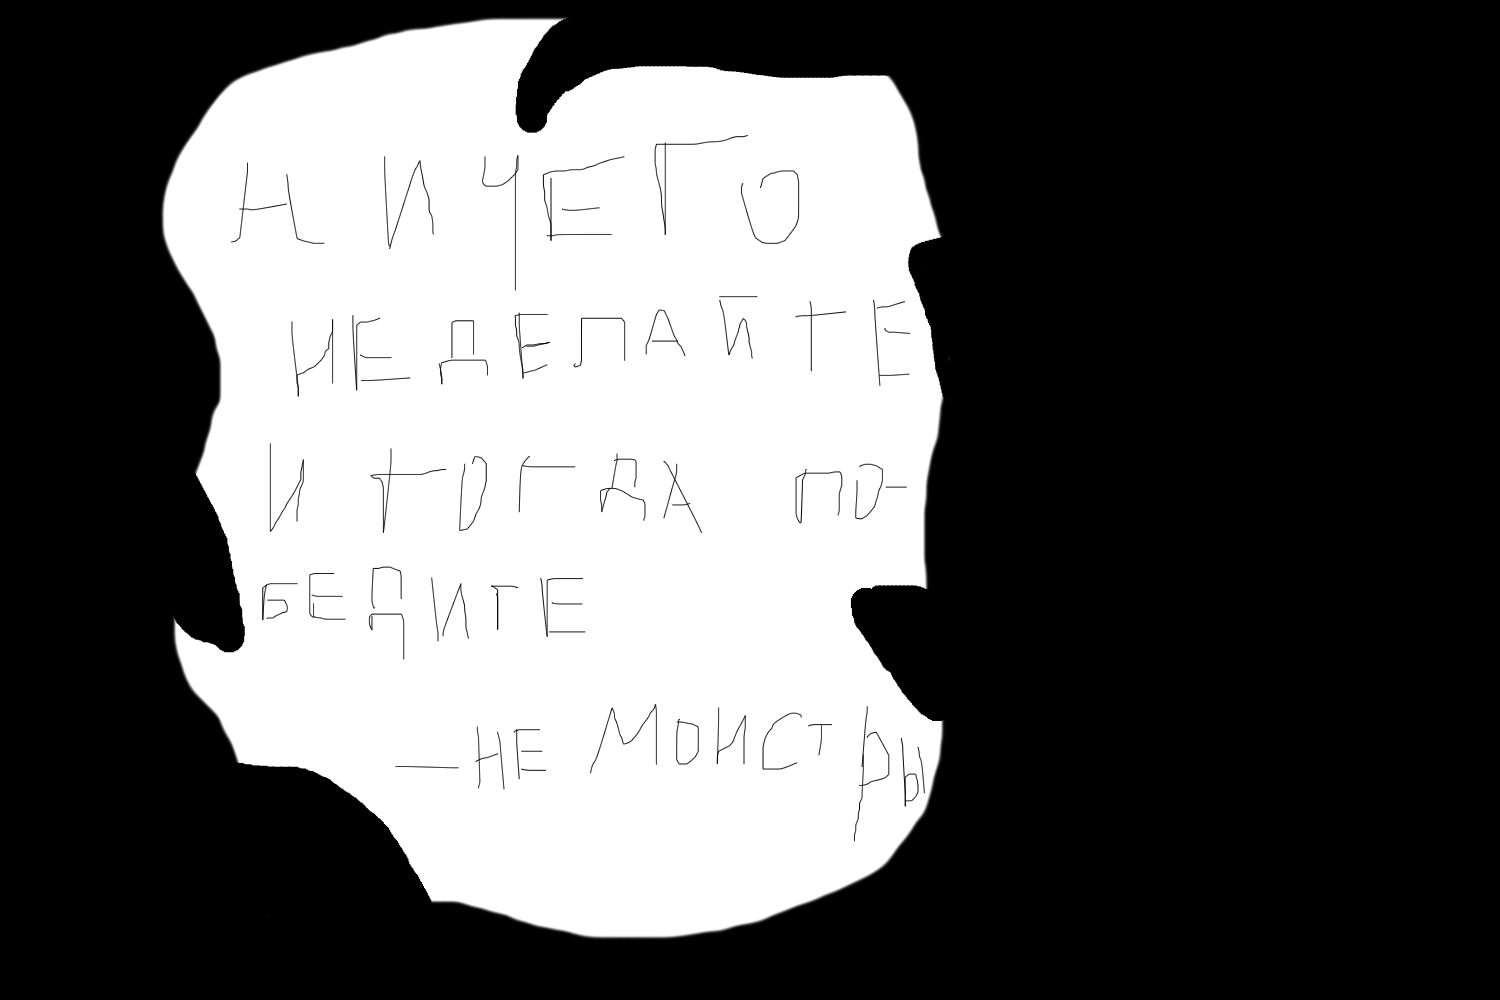 НИЧЕГО
НЕ ДЕЛАЙТЕ
И ТОГДА ПО-
БЕДИТЕ
— НЕ МОНСТРЫ